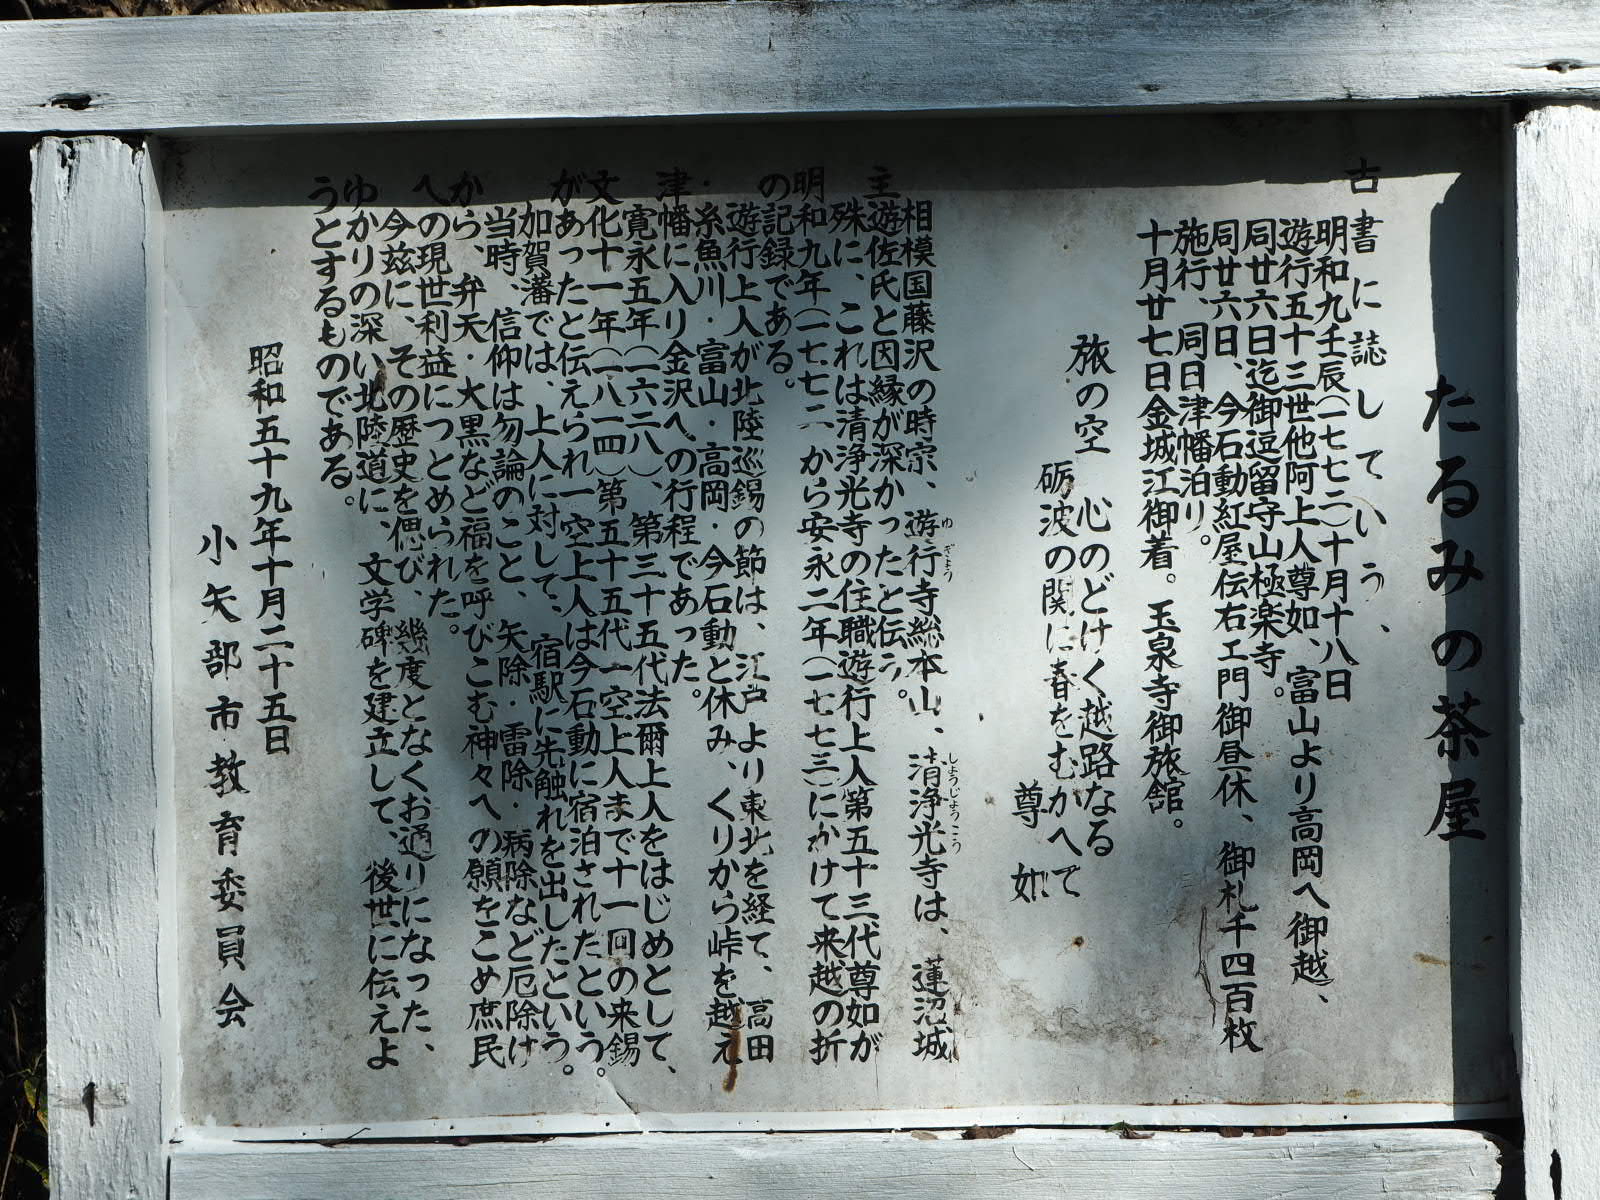 たるみの茶屋
古書に誌していう、
明和九壬辰(一七七二)十月十八日
遊行五十三世他阿上人尊如、富山より高岡へ御越、
同廿六日迄御逗留守山極楽寺。
同廿六日、今石動紅屋伝右エ門御昼休、御札千四百枚
施行、同日津幡泊り。
十月廿七日金城江御着。玉泉寺御旅館。
旅の空 心のどけく越路なる
砺波の関に春をむかへて
尊如
相模国藤沢の時宗、遊行寺総本山、清浄光寺は、蓮沼城
ゆぎょう
しょうじょうこう
主遊佐氏と因縁が深かったと伝う。
殊に、これは清浄光寺の住職遊行上人第五十三代尊如が
明和九年(一七七二)から安永二年(一七七三)にかけて来越の折
の記録である。
遊行上人が北陸巡錫の節は、江戸より東北を経て、高田
・糸魚川・富山・高岡・今石動と休み、くりから峠を越え
津幡に入り金沢への行程であった。
寛永五年(一六二八)、第三十五代法爾上人をはじめとして、
文化十一年(一八一四)第五十五代一空上人まで十一回の来錫
があったと伝えられ一空上人は今石動に宿泊されたという。
加賀藩では、上人に対して、宿駅に先触れを出したという。
当時、信仰は勿論のこと、矢除・雷除・病除など厄除け
から、弁天・大黒など福を呼びこむ神々への願をこめ庶民
への現世利益につとめられた。
今茲に、その歴史を偲び、幾度となくお通りになった、
ゆかりの深い北陸道に、文学碑を建立して、後世に伝えよ
うとするものである。
昭和五十九年十月二十五日
小矢部市教育委員会